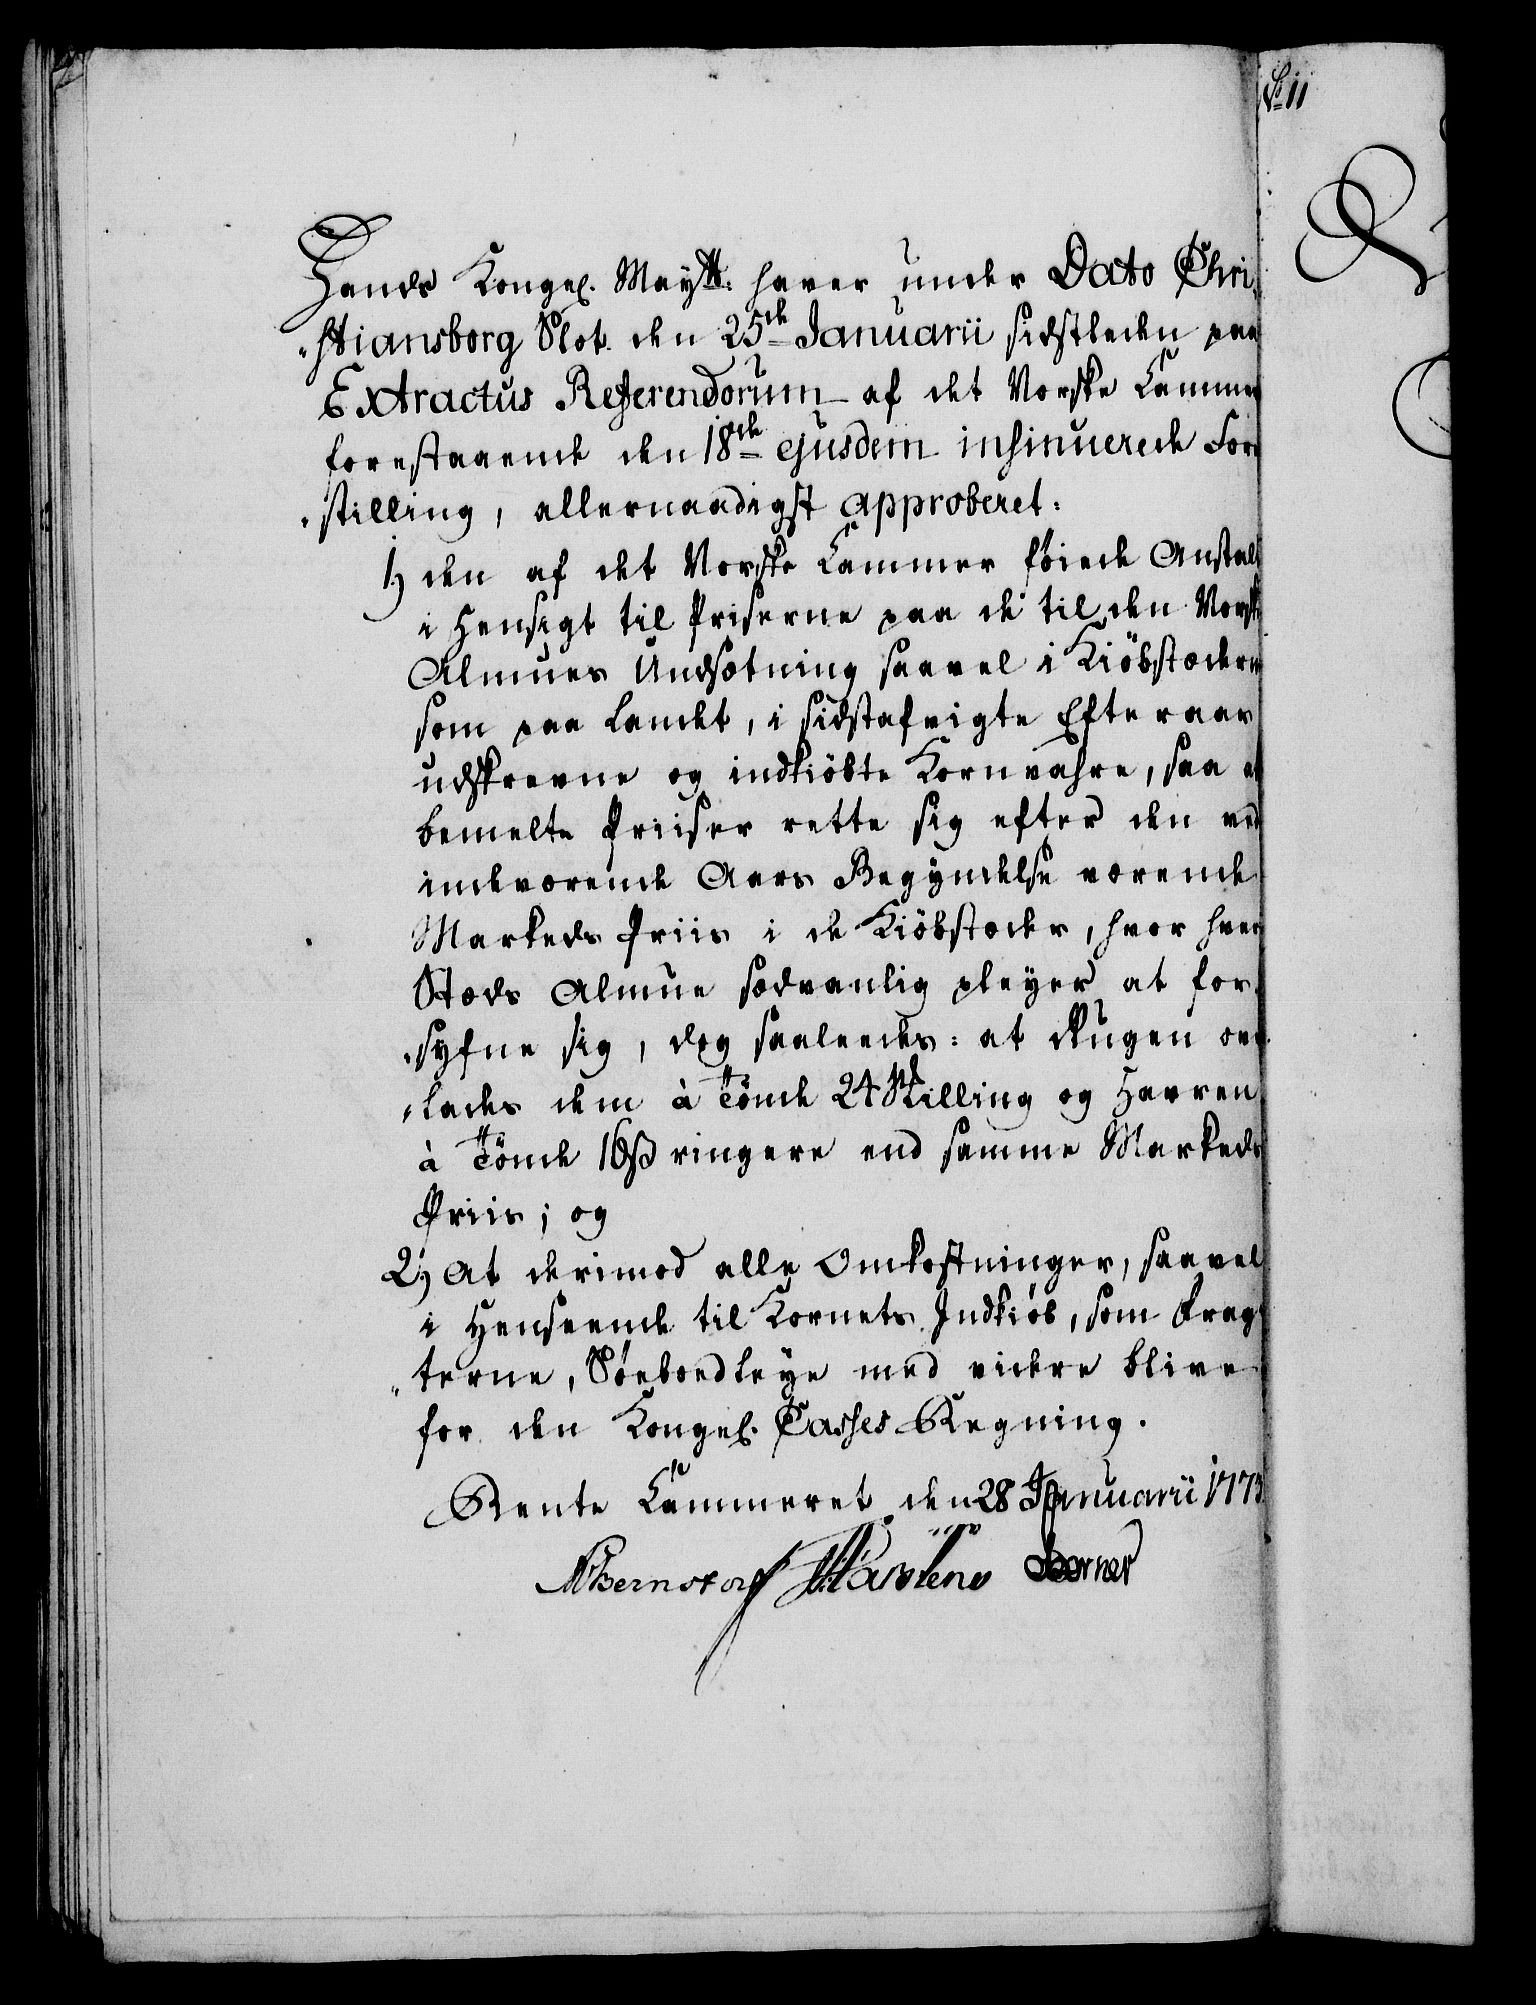 No 11
Hands Kongel. Maytt: haver under Dato Chri-
„stiansborg Slot den 25de Januarii sidstleden paa
Extractus Referendorum af det Norske Cammer
forestaaende den 18de ejusdem insinuerede Fore
„stilling, allernaadigst approberet:
1) den af det Norske Cammer føiede Anstalt
i Hensigt til Priserne paa de til den Norske
Almues Undsætning saavel i Kiöbstæderne
som paa Landet, i sidstafvigte Efteraar
udskrevne og indkiöbte Kornvahre, saa at
bemelte Priiser rette sig efter den ved
indeværende Aars Begyndelse værende
Markeds Priis i de Kiöbstæder, hvor hver
Stæds Almue sædvanlig pleyer at for-
„syfne sig, dog saaleedes: at Rugen over
„lades dem à Tönde 24 Skilling og Havren
à Tönde 16 ß ringere end samme Markeds
Priis; og
2) At derimod alle Omkostninger, saavel
i Henseende til Kornets Indkiöb, som Frag
„terne, Söeboedleye med videre blive
for den Kongel. Casses Regning.
Rente Cammeret den 28 Januarii 1773
ABernstorff